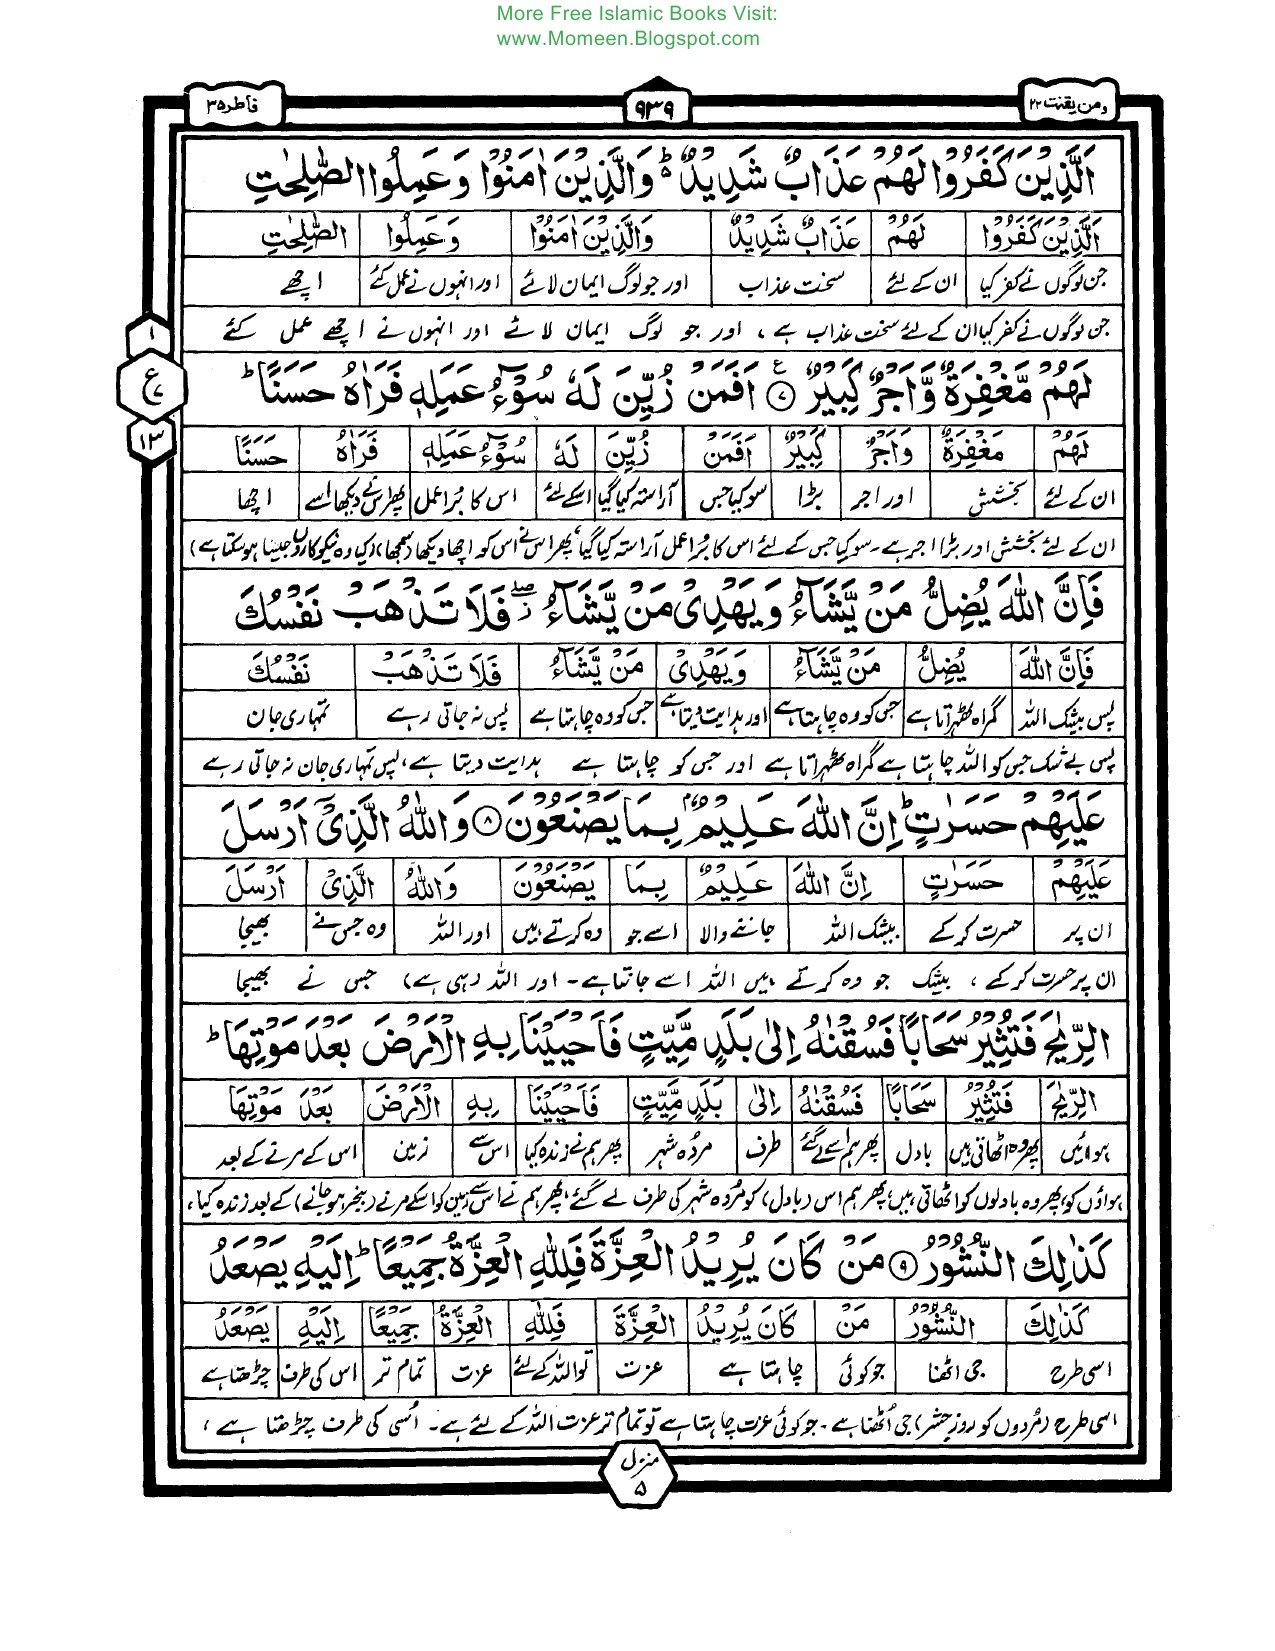 More Free Islamic Books Visit:
www.Momeen.Blogspot.com
ومن یقنت ۲۲ ۹۳۹ فاطر ۳۵
اَلَّذِيْنَ كَفَرُوْا لَهُمْ عَذَابٌ شَدِيْدٌ ؕ وَالَّذِيْنَ اٰمَنُوْا وَعَمِلُوا الصّٰلِحٰتِ
اَلَّذِيْنَ كَفَرُوْا لَهُمْ عَذَابٌ شَدِيْدٌ وَالَّذِيْنَ اٰمَنُوْا وَعَمِلُوا الصّٰلِحٰتِ
جن لوگوں نے کفر کیا ان کے لئے سخت عذاب اور جو لوگ ایمان لائے اور انہوں نے عمل کئے اچھے
جن لوگوں نے کفر کیا ان کے لئے سخت عذاب ہے ، اور جو لوگ ایمان لائے اور انہوں نے اچھے عمل کئے
۱
ع
۷
۱۳
لَهُمْ مَّغْفِرَةٌ وَّاَجْرٌ كَبِيْرٌ ۷ اَفَمَنْ زُيِّنَ لَهٗ سُوْٓءُ عَمَلِهٖ فَرَاٰهُ حَسَنًا ؕ
لَهُمْ مَغْفِرَةٌ وَاَجْرٌ كَبِيْرٌ اَفَمَنْ زُيِّنَ لَهٗ سُوْٓءُ عَمَلِهٖ فَرَاٰهُ حَسَنًا
ان کے لئے بخشش اور اجر بڑا سو کیا جس آراستہ کیا گیا اسکے لئے اس کا بُرا عمل پھر اس نے دیکھا اسے اچھا
ان کے لئے بخشش اور بڑا اجر ہے۔ سو کیا جس کے لئے اس کا بُرا عمل آراستہ کیا گیا ، پھر اس نے اس کو اچھا دیکھا (سمجھا) (کیا وہ نیکوکاروں جیسا ہو سکتا ہے)
فَاِنَّ اللّٰهَ يُضِلُّ مَنْ يَّشَآءُ وَيَهْدِيْ مَنْ يَّشَآءُ ۖ فَلَا تَذْهَبْ نَفْسُكَ
فَاِنَّ اللّٰهَ يُضِلُّ مَنْ يَّشَآءُ وَيَهْدِيْ مَنْ يَّشَآءُ فَلَا تَذْهَبْ نَفْسُكَ
پس بیشک اللہ گمراہ ٹھہراتا ہے جس کو وہ چاہتا ہے اور ہدایت دیتا ہے جس کو وہ چاہتا ہے پس نہ جاتی رہے تمہاری جان
پس بے شک جس کو اللہ چاہتا ہے گمراہ ٹھہراتا ہے اور جس کو چاہتا ہے ہدایت دیتا ہے ، پس تمہاری جان نہ جاتی رہے
عَلَيْهِمْ حَسَرٰتٍ ؕ اِنَّ اللّٰهَ عَلِيْمٌۢ بِمَا يَصْنَعُوْنَ ۸ وَاللّٰهُ الَّذِيْٓ اَرْسَلَ
عَلَيْهِمْ حَسَرٰتٍ اِنَّ اللّٰهَ عَلِيْمٌ بِمَا يَصْنَعُوْنَ وَاللّٰهُ الَّذِيْ اَرْسَلَ
ان پر حسرت کر کے بیشک اللہ جاننے والا اسے جو وہ کرتے ہیں اور اللہ وہ جس نے بھیجا
ان پر حسرت کر کے ، بیشک جو وہ کرتے ہیں اللہ اسے جانتا ہے۔ اور اللہ (وہی ہے) جس نے بھیجا
الرِّيٰحَ فَتُثِيْرُ سَحَابًا فَسُقْنٰهُ اِلٰى بَلَدٍ مَّيِّتٍ فَاَحْيَيْنَا بِهِ الْاَرْضَ بَعْدَ مَوْتِهَا ؕ
الرِّيٰحَ فَتُثِيْرُ سَحَابًا فَسُقْنٰهُ اِلٰى بَلَدٍ مَّيِّتٍ فَاَحْيَيْنَا بِهِ الْاَرْضَ بَعْدَ مَوْتِهَا
ہوائیں پھر وہ اٹھاتی ہیں بادل پھر ہم اسے لے گئے طرف مردہ شہر پھر ہم نے زندہ کیا اس سے زمین اس کے مرنے کے بعد
ہواؤں کو ، پھر وہ بادلوں کو اٹھاتی ہیں ، پھر ہم اس (بادل) کو مُردہ شہر کی طرف لے گئے ، پھر ہم نے اس سے زمین کو اسکے مرنے (بنجر ہو جانے) کے بعد زندہ کیا ،
كَذٰلِكَ النُّشُوْرُ ۹ مَنْ كَانَ يُرِيْدُ الْعِزَّةَ فَلِلّٰهِ الْعِزَّةُ جَمِيْعًا ؕ اِلَيْهِ يَصْعَدُ
كَذٰلِكَ النُّشُوْرُ مَنْ كَانَ يُرِيْدُ الْعِزَّةَ فَلِلّٰهِ الْعِزَّةُ جَمِيْعًا اِلَيْهِ يَصْعَدُ
اسی طرح جی اٹھنا جو کوئی چاہتا ہے عزت تو اللہ کے لئے عزت تمام تر اس کی طرف چڑھتا ہے
اسی طرح (مُردوں کو روزِ حشر) جی اُٹھنا ہے۔ جو کوئی عزت چاہتا ہے تو تمام تر عزت اللہ کے لئے ہے۔ اُسی کی طرف چڑھتا ہے ،
منزل
۵